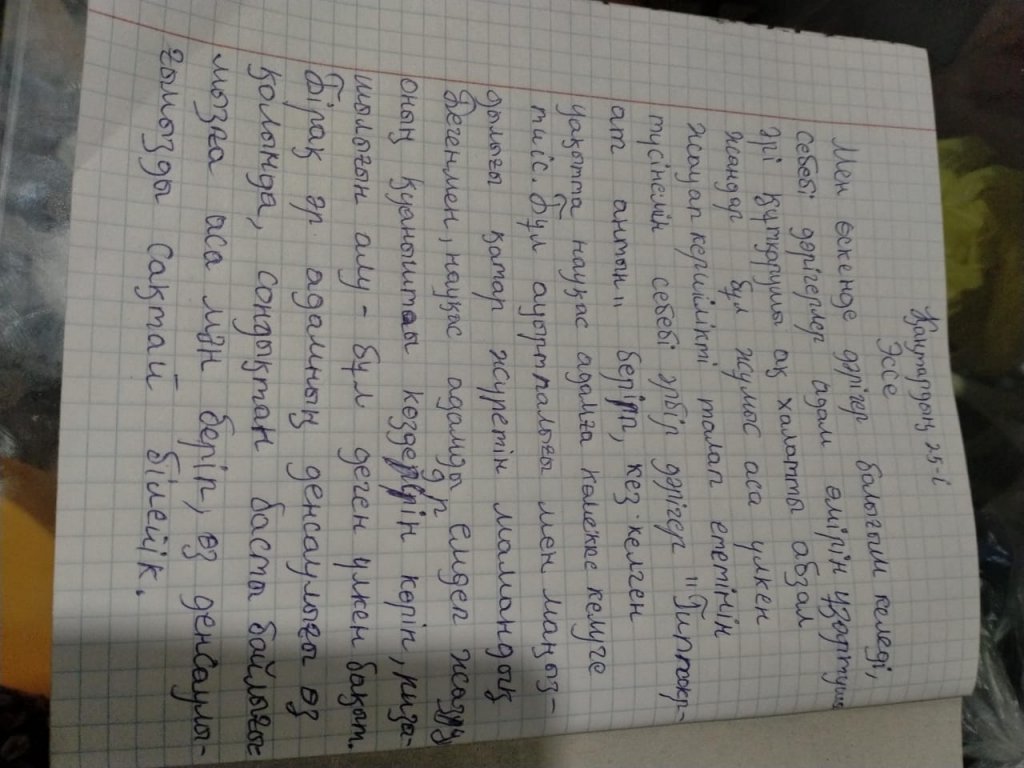 Қаңтардың 25-і
Эссе
Мен өскенде дәрігер болығым келеді,
себебі дәрігерлер адам өмірін ұзартушы
әрі құтқарушы ақ халатты абзал
жандар бұл жұмыс аса үлкен
жауапкершілікті талап ететінін
түсінемін себебі әрбір дәрігер "Гиппокр-
ат антын" беріп, кез-келген
уақытта науқас адамға көмекке келуге
тиіс. Бұл ауыртпалығы мен маңыз-
дылығы қатар жүретін мамандық
Дегенмен, науқас адамдәрді емдеп жазу,
оның қуанышты көздерін көріп, риза-
шылығын алу - бұл деген үлкен бақыт.
Бірақ әр адамның денсаулығы өз
қолында, сондықтан басты байлығы-
мызға аса мән беріп, өз денсаулы-
ғымызды сақтай білейік.